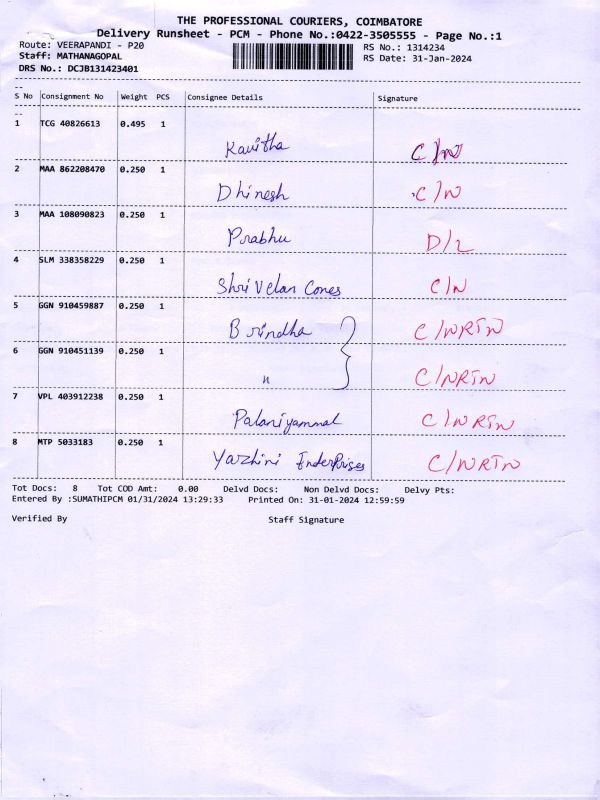 THE PROFESSIONAL COURIERS, COIMBATORE
Delivery Runsheet - PCM - Phone No.:0422-3505555 - Page No.:1
Route: VEERAPANDI - P20
RS No.: 1314234
Staff: MATHANAGOPAL
RS Date: 31-Jan-2024
DRS No.: DCJB131423401
S No Consignment No Weight PCS Consignee Details Signature
1 TCG 40826613 0.495 1
Kavitha C/N
2 MAA 862208470 0.250 1
Dhinesh C/N
3 MAA 108090823 0.250 1
Prabhu D/L
4 SLM 338358229 0.250 1
Shri Velan Cones C/N
5 GGN 910459887 0.250 1
Brindha C/NRTN
6 GGN 910451139 0.250 1
" C/NRTN
7 VPL 403912238 0.250 1
Palaniyammal C/NRTN
8 MTP 5033183 0.250 1
Yazhini Enderprises C/NRTN
Tot Docs: 8 Tot COD Amt: 0.00 Delvd Docs: Non Delvd Docs: Delvy Pts:
Entered By :SUMATHIPCM 01/31/2024 13:29:33 Printed On: 31-01-2024 12:59:59
Verified By Staff Signature